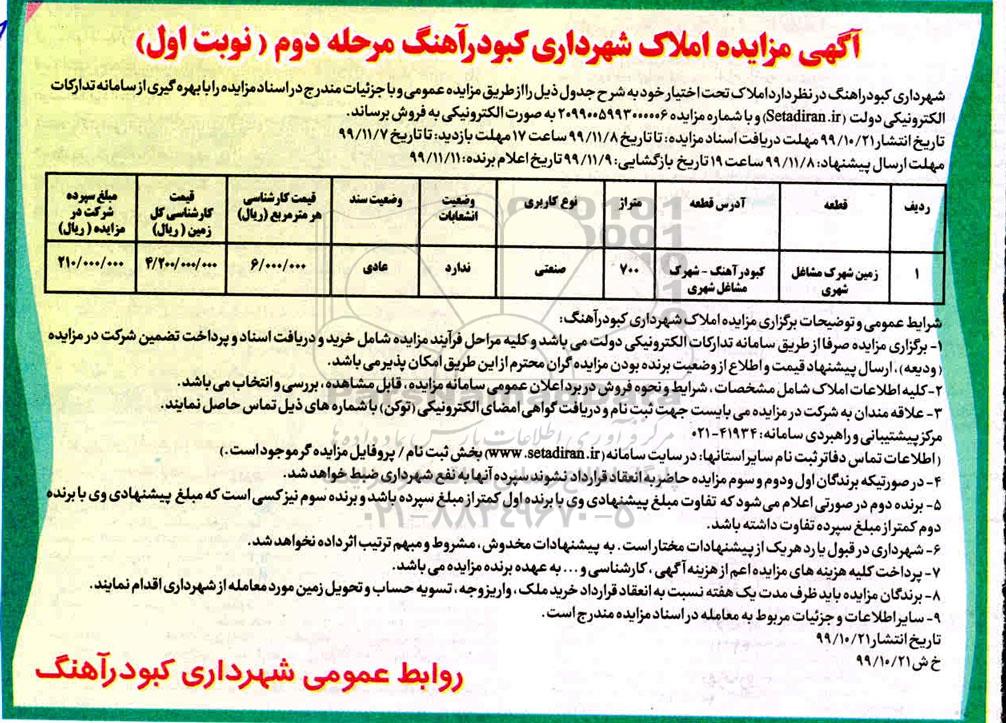 آگهی مزایده املاک شهرداری کبودرآهنگ مرحله دوم ( نوبت اول)
شهرداری کبودراهنگ در نظر دارد املاک تحت اختیار خود به شرح جدول ذیل را از طریق مزایده عمومی و با جزئیات مندرج در اسناد مزایده را با بهره گیری از سامانه تدارکات
الکترونیکی دولت (Setadiran.ir) و با شماره مزایده ۲۰۹۹۰۰۵۹۹۳۰۰۰۰۰۶ به صورت الکترونیکی به فروش برساند.
تاریخ انتشار ۹۹/۱۰/۲۱ مهلت دریافت اسناد مزایده: تا تاریخ ۹۹/۱۱/۸ ساعت ۱۷ مهلت بازدید: تا تاریخ ۹۹/۱۱/۷
مهلت ارسال پیشنهاد: ۹۹/۱۱/۸ ساعت ۱۹ تاریخ بازگشایی: ۹۹/۱۱/۹ تاریخ اعلام برنده: ۹۹/۱۱/۱۱
ردیف قطعه آدرس قطعه متراژ نوع کاربری وضعیت انشعابات وضعیت سند قیمت کارشناسی هر مترمربع (ریال) قیمت کارشناسی کل زمین ( ریال) مبلغ سپرده شرکت در مزایده ( ریال)
۱ زمین شهرک مشاغل شهری کبودرآهنگ - شهرک مشاغل شهری ۷۰۰ صنعتی ندارد عادی ۶/۰۰۰/۰۰۰ ۴/۲۰۰/۰۰۰/۰۰۰ ۲۱۰/۰۰۰/۰۰۰
شرایط عمومی و توضیحات برگزاری مزایده املاک شهرداری کبودرآهنگ:
۱- برگزاری مزایده صرفا از طریق سامانه تدارکات الکترونیکی دولت می باشد و کلیه مراحل فرآیند مزایده شامل خرید و دریافت اسناد و پرداخت تضمین شرکت در مزایده
( ودیعه) ، ارسال پیشنهاد قیمت و اطلاع از وضعیت برنده بودن مزایده گران محترم از این طریق امکان پذیر می باشد.
۲- کلیه اطلاعات املاک شامل مشخصات ، شرایط و نحوه فروش در برد اعلان عمومی سامانه مزایده، قابل مشاهده ، بررسی و انتخاب می باشد.
۳- علاقه مندان به شرکت در مزایده می بایست جهت ثبت نام و دریافت گواهی امضای الکترونیکی (توکن) با شماره های ذیل تماس حاصل نمایند.
مرکز پیشتیبانی و راهبردی سامانه: ۴۱۹۳۴-۰۲۱
( اطلاعات تماس دفاتر ثبت نام سایر استانها: در سایت سامانه (www.setadiran.ir) بخش ثبت نام / پروفایل مزایده گر موجود است.)
۴- در صورتیکه برندگان اول و دوم و سوم مزایده حاضر به انعقاد قرارداد نشوند سپرده آنها به نفع شهرداری ضبط خواهد شد.
۵- برنده دوم در صورتی اعلام می شود که تفاوت مبلغ پیشنهادی وی با برنده اول کمتر از مبلغ سپرده باشد و برنده سوم نیز کسی است که مبلغ پیشنهادی وی با برنده
دوم کمتر از مبلغ سپرده تفاوت داشته باشد.
۶- شهرداری در قبول یا رد هر یک از پیشنهادات مختار است . به پیشنهادات مخدوش ، مشروط و مبهم ترتیب اثر داده نخواهد شد.
۷- پرداخت کلیه هزینه های مزایده اعم از هزینه آگهی ، کارشناسی و ... به عهده برنده مزایده می باشد.
۸- برندگان مزایده باید ظرف مدت یک هفته نسبت به انعقاد قرارداد خرید ملک ، واریز وجه ، تسویه حساب و تحویل زمین مورد معامله از شهرداری اقدام نمایند.
۹- سایر اطلاعات و جزئیات مربوط به معامله در اسناد مزایده مندرج است.
تاریخ انتشار ۹۹/۱۰/۲۱
خ ش ۹۹/۱۰/۲۱
روابط عمومی شهرداری کبودرآهنگ
ParsNamadData
۰۲۱-۸۸۳۴۹۶۷۰-۵